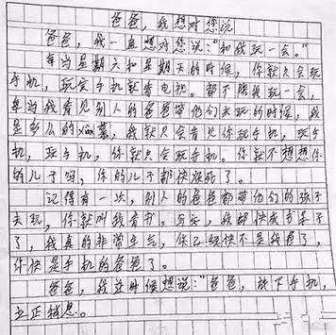 爸爸,我想对您说
爸爸,我一直想对您说:"和我玩一会。"
每当星期六和星期天的时候,你就只会玩
手机,玩完手机就看电视。都不陪我玩一会,
每当我看见别人的爸爸带他们去玩的时候,我
是多么的xian慕,我就只会看见你玩手机,玩手
机,玩手机,你就只会玩手机。你就不想想你
的儿子吗,你的儿子都快疯了。
记得有一次,别人的爸爸都带他们的孩子
去玩,你就叫我看书,写完,我都快成书呆子
了,我真的非常生气,你已经快不是我爸了,
你快是手机的爸爸了。
爸爸,我这时候想说:"爸爸,放下手机,